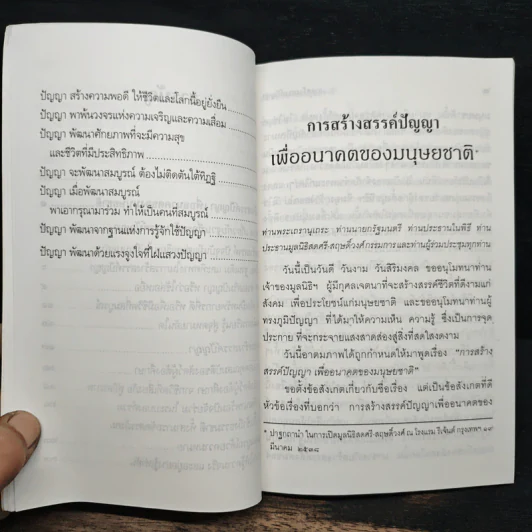 ปัญญา สร้างความพอดี ให้ชีวิตและโลกนี้อยู่ยั่งยืน
ปัญญา พาพ้นวงจรแห่งความเจริญและความเสื่อม
ปัญญา พัฒนาศักยภาพที่จะมีความสุข
และชีวิตที่มีประสิทธิภาพ
ปัญญา จะพัฒนาสมบูรณ์ ต้องไม่ติดตันใต้ทิฏฐิ
ปัญญา เมื่อพัฒนาสมบูรณ์
พาเอากรุณามาร่วม ทำให้เป็นคนที่สมบูรณ์
ปัญญา พัฒนาจากฐานแห่งการรู้จักใช้ปัญญา
ปัญญา พัฒนาด้วยแรงจูงใจที่ใฝ่แสวงปัญญา
การสร้างสรรค์ปัญญา
เพื่ออนาคตของมนุษยชาติ*
ท่านพระเถรานุเถระ ท่านนายกรัฐมนตรี ท่านประธานในพิธี ท่าน
ประธานมูลนิธิสดศรี-สฤษดิ์วงศ์ กรรมการ และท่านผู้ร่วมประชุมทุกท่าน
วันนี้เป็นวันดี วันงาม วันสิริมงคล ขออนุโมทนาท่าน
เจ้าของมูลนิธิฯ ผู้มีกุศลเจตนาที่จะสร้างสรรค์ชีวิตที่ดีงามแก่
สังคม เพื่อประโยชน์แก่มนุษยชาติ และขออนุโมทนาท่านผู้
ทรงภูมิปัญญา ที่ได้มาให้ความเห็น ความรู้ ซึ่งเป็นการจุด
ประกาย ที่จะกระจายแสงสาดส่องสู่สิ่งที่สดใสงดงาม
วันนี้อาตมภาพได้ถูกกำหนดให้มาพูดเรื่อง “การสร้าง
สรรค์ปัญญา เพื่ออนาคตของมนุษยชาติ”
ขอตั้งข้อสังเกตเกี่ยวกับชื่อเรื่อง แต่เป็นข้อสังเกตที่ดี
หัวข้อเรื่องที่บอกว่า การสร้างสรรค์ปัญญาเพื่ออนาคตของ
* ปาฐกถานำ ในการเปิดมูลนิธิสดศรี-สฤษดิ์วงศ์ ณ โรงแรม รีเจ้นต์ กรุงเทพฯ ๑๙
มีนาคม ๒๕๓๘